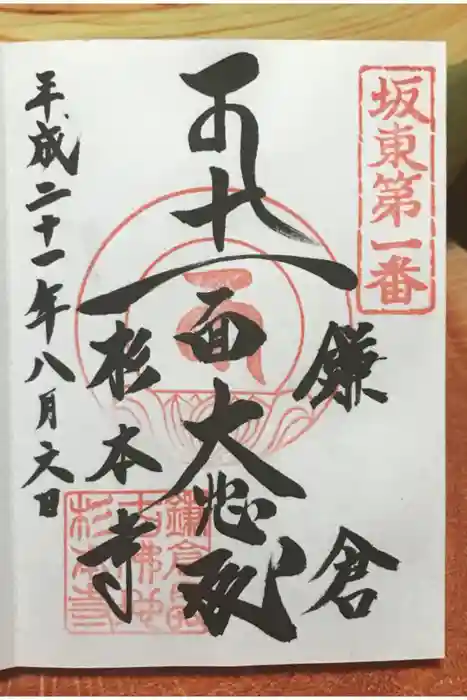 坂東第一番
鎌倉
十一面大悲殿
杉本寺
平成二十一年八月日